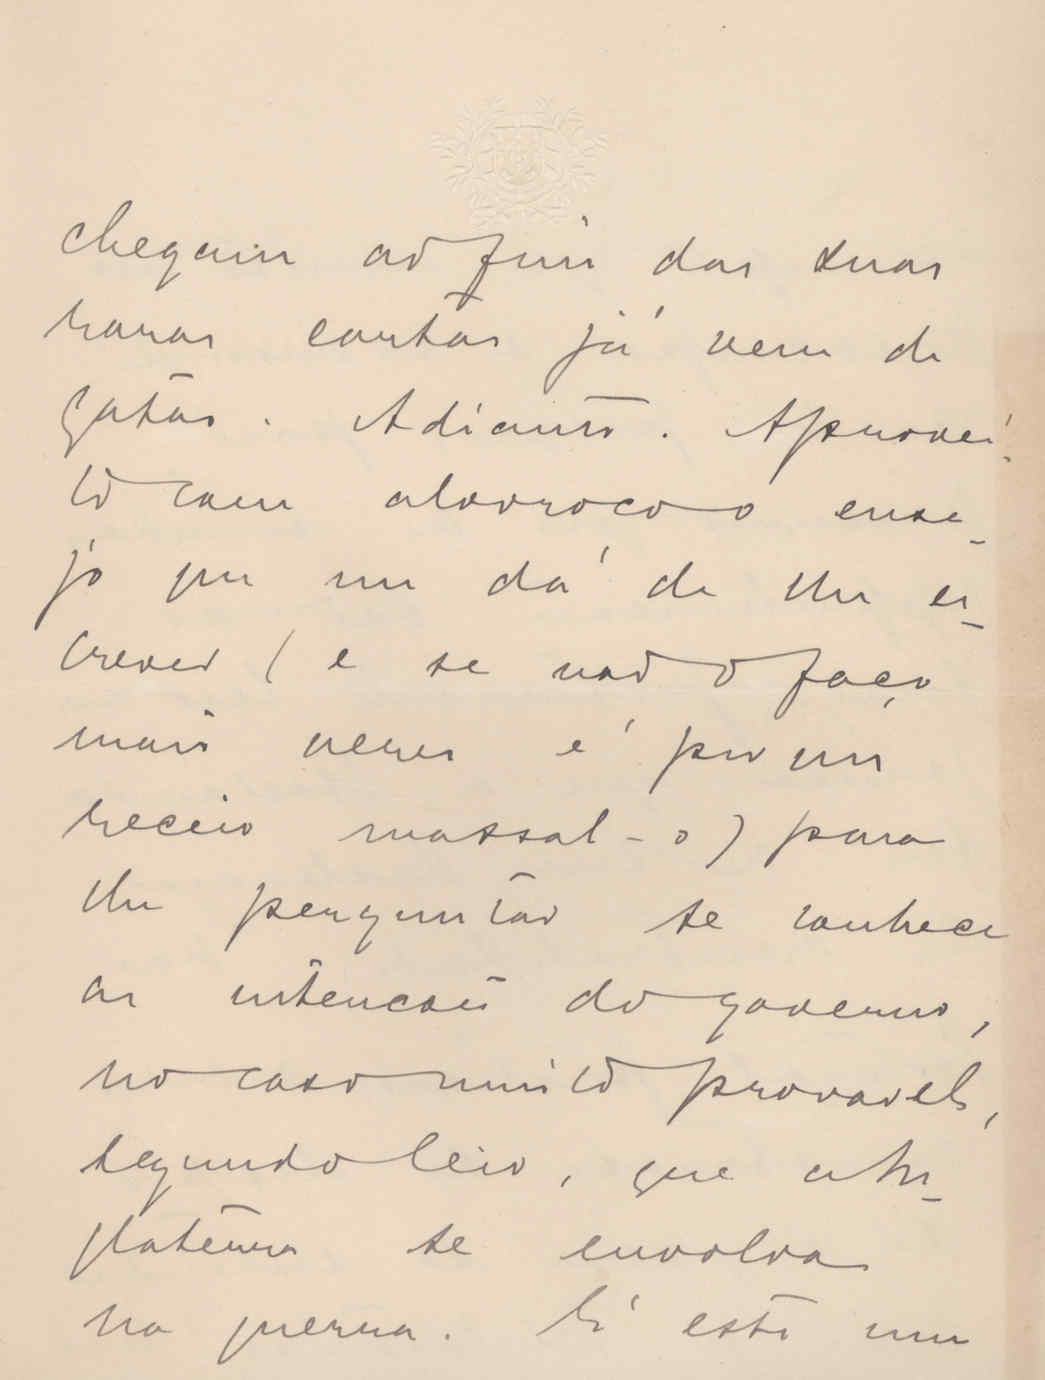 chegam ao fim das suas
raras cartas já vem de
gatas. Adiante. Aprovei-
to com alvoroço o ense-
jo que me dá de lhe es-
crever (e se não o faço
mais vezes é por um
receio massal-o) para
lhe perguntar se conhece
as intenções do governo,
no caso muito provavel,
segundo leio, que a In-
glaterra se envolva
na guerra. Si este um